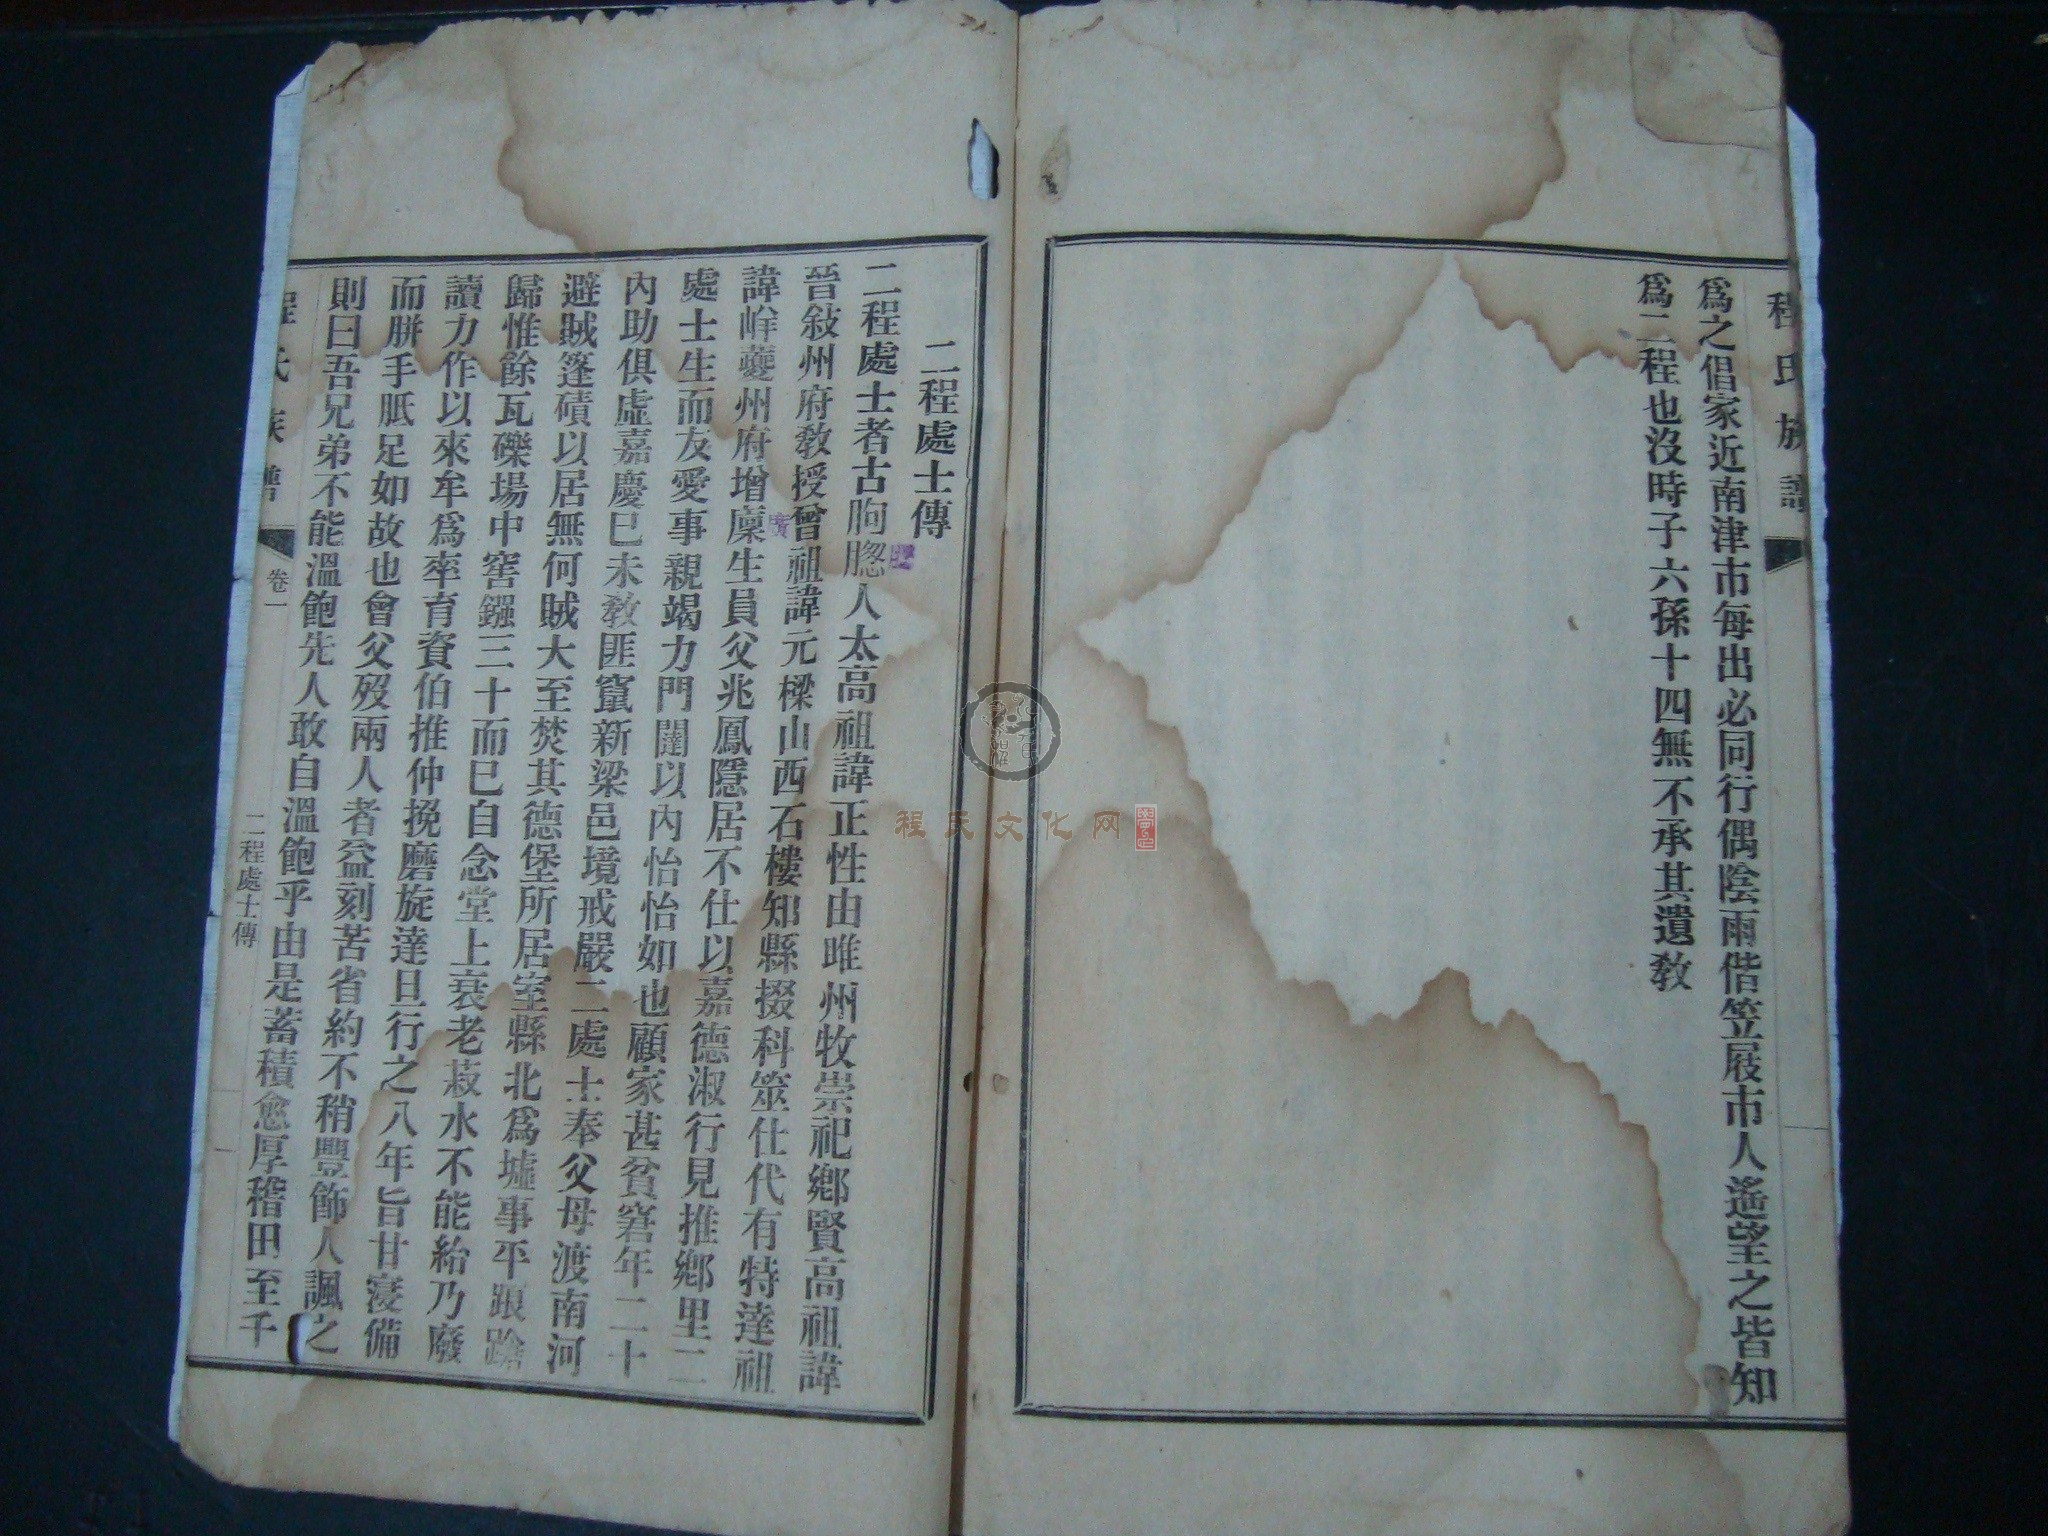 程氏族譜
爲之倡家近南津市每出必同行偶陰雨偕笠屐市人遙望之皆知
爲二程也沒時子六孫十四無不承其遺教
二程處士傳
二程處士者古朐䏰人太高祖諱正性由雎州牧崇祀鄉賢高祖諱
晉敍州府教授曾祖諱元樑山西石樓知縣掇科筮仕代有特達祖
諱嵱夔州府增廩生員父兆鳳隱居不仕以嘉德淑行見推鄉里二
處士生而友愛事親竭力門闈以內怡怡如也顧家甚貧窘年二十
內助俱虛嘉慶已未教匪竄新梁邑境戒嚴二處士奉父母渡南河
避賊篷磧以居無何賊大至焚其德堡所居室縣北爲墟事平踉蹌
歸惟餘瓦礫場中窖鏹三十而已自念堂上衰老菽水不能給乃廢
讀力作以來牟爲率育資伯推仲挽磨旋達旦行之八年旨甘寖備
而胼手胝足如故也會父歿兩人者益刻苦省約不稍豐飾人諷之
則曰吾兄弟不能溫飽先人敢自溫飽乎由是蓄積愈厚稽田至千
程氏族譜
卷一
二程處士傳
程氏文化网